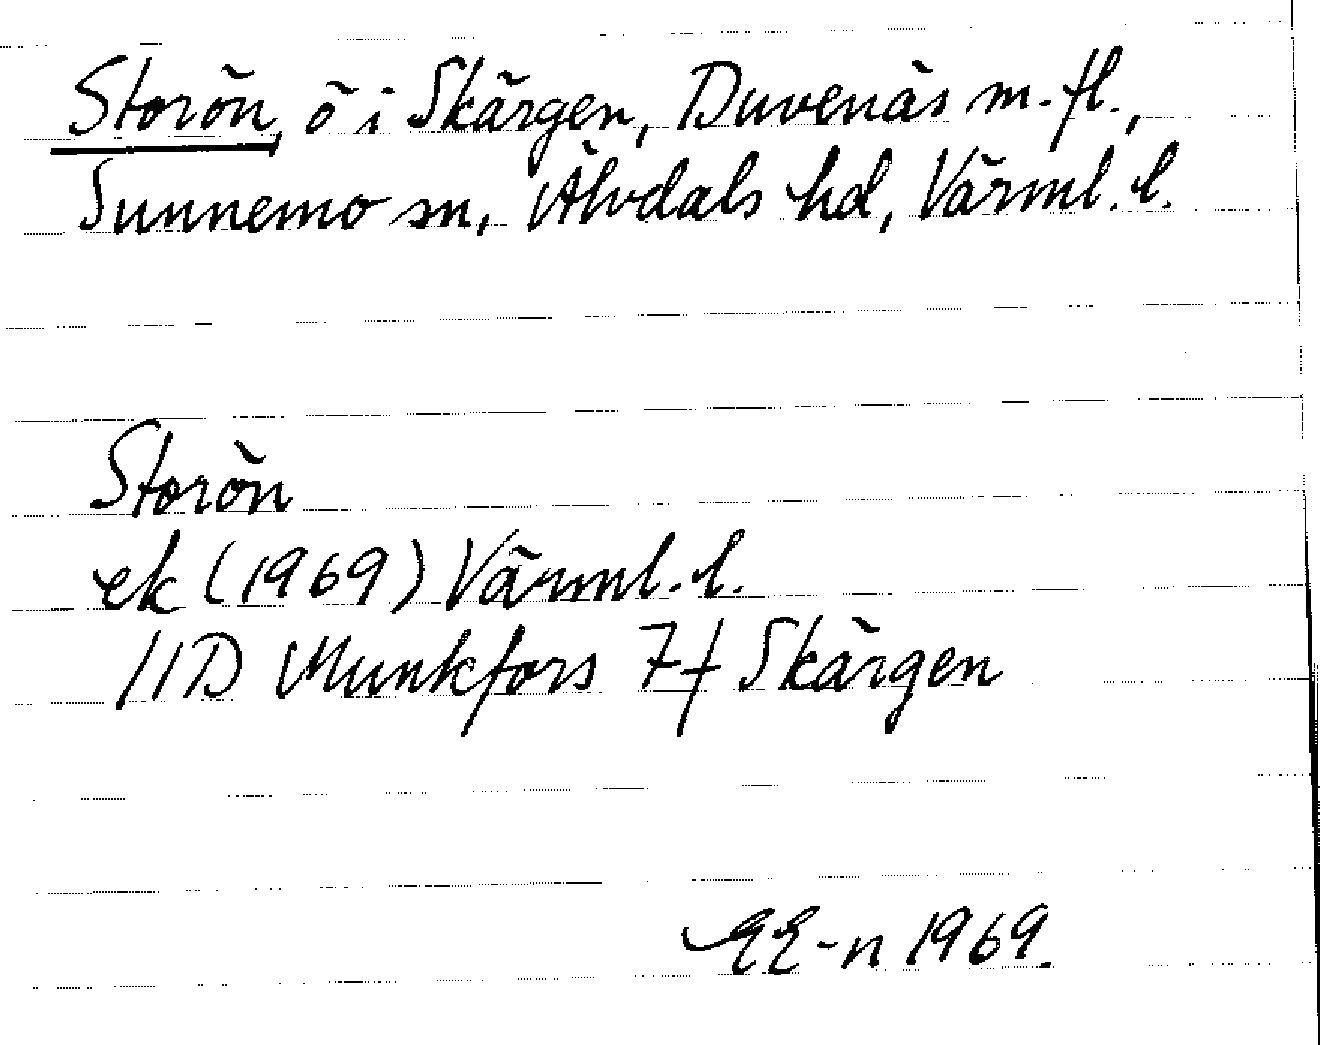 Storön, ö i Skärgen, Duvenäs m. fl.,
Sunnemo sn, Älvdals hd, Värml. l.
Storön
ek (1969) Värml. l.
11D Munkfors 7f Skärgen
EE-n 1969.